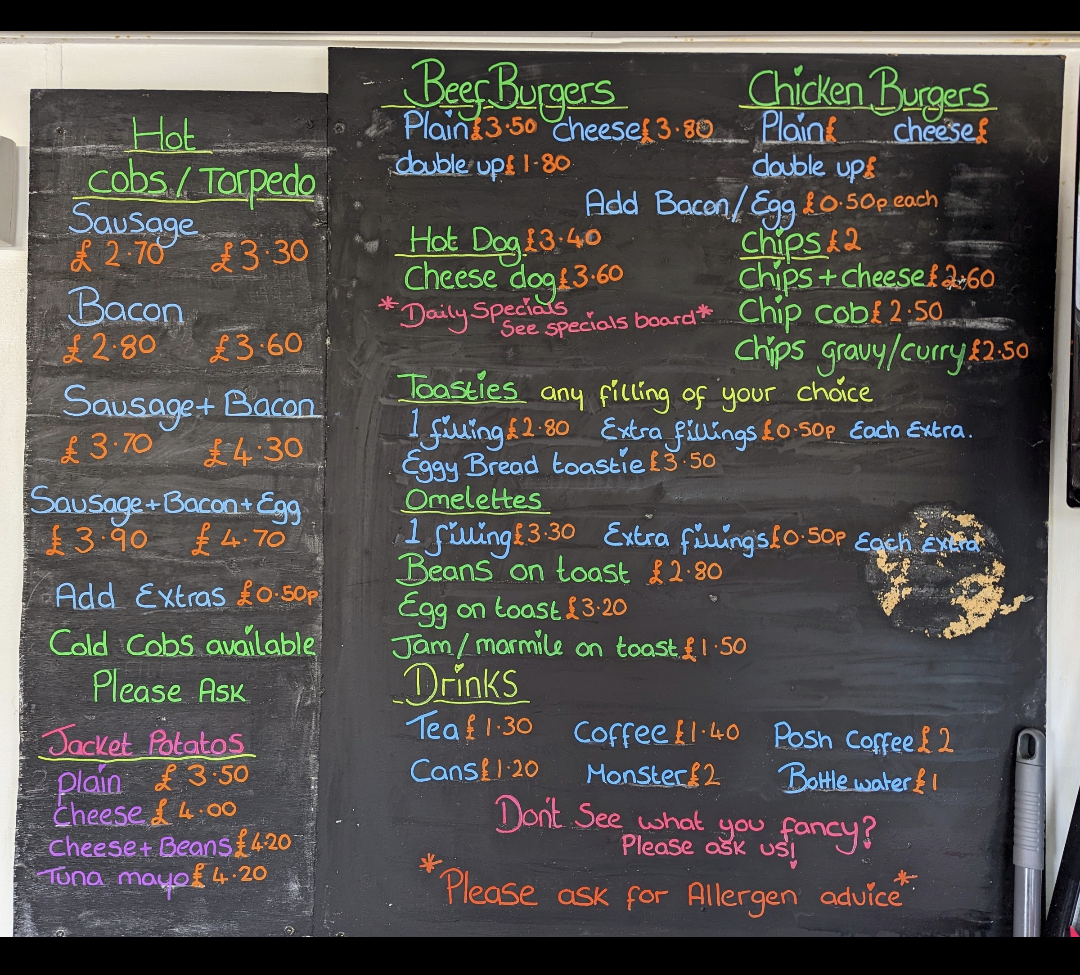 Hot
Cobs / Torpedo
Sausage
£2.70 £3.30
Bacon
£2.80 £3.60
Sausage + Bacon
£3.70 £4.30
Sausage + Bacon + Egg
£3.90 £4.70
Add Extras £0.50p
Cold Cobs available
Please Ask
Jacket Potatos
Plain £3.50
Cheese £4.00
Cheese + Beans £4.20
Tuna mayo £4.20
Beef Burgers
Plain £3.50 cheese £3.80
double up £1.80
Chicken Burgers
Plain £ cheese £
double up £
Add Bacon/Egg £0.50p each
Hot Dog £3.40
Cheese dog £3.60
*Daily Specials
See specials board*
Chips £2
Chips + cheese £2.60
Chip cob £2.50
Chips gravy/curry £2.50
Toasties any filling of your choice
1 filling £2.80 Extra fillings £0.50p Each Extra.
Eggy Bread toastie £3.50
Omelettes
1 filling £3.30 Extra fillings £0.50p Each Extra
Beans on toast £2.80
Egg on toast £3.20
Jam / marmile on toast £1.50
Drinks
Tea £1.30 Coffee £1.40 Posh Coffee £2
Cans £1.20 Monster £2 Bottle water £1
Don't See what you fancy?
Please ask us!
*Please ask for Allergen advice*